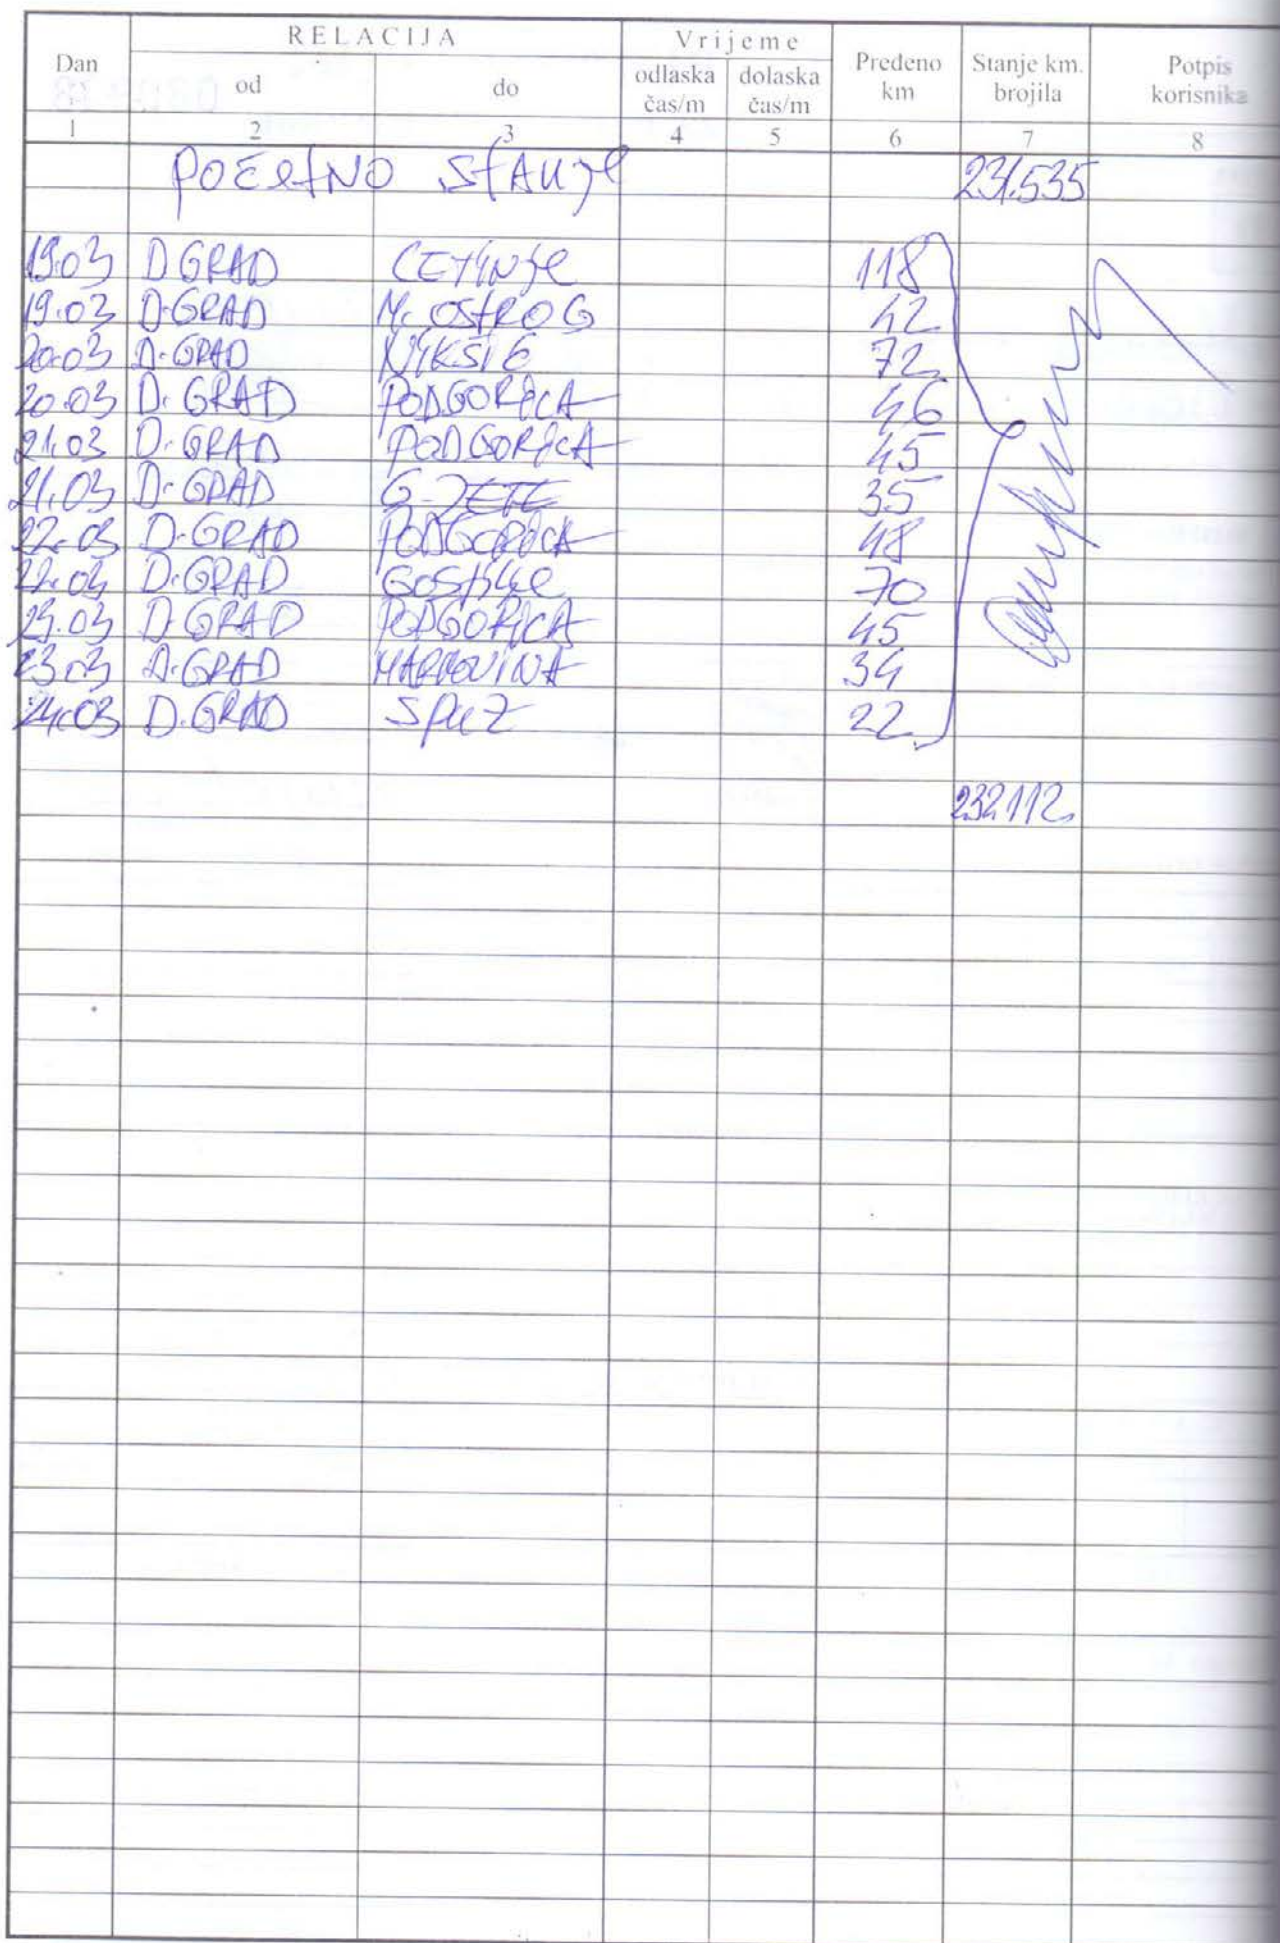 RELACIJA Vrijeme
Dan od do odlaska čas/m dolaska čas/m Pređeno km Stanje km. brojila Potpis korisnika
1 2 3 4 5 6 7 8
POČETNO STANJE 231.535
19.03 D GRAD CETINJE 118
19.03 D.GRAD M. OSTROG 42
20.03 D.GRAD NIKŠIĆ 72
20.03 D. GRAD PODGORICA 46
21.03 D. GRAD PODGORICA 45
21.03 D. GRAD G-ZETE 35
22.03 D.GRAD PODGORICA 48
22.03 D.GRAD GOSTILJE 70
23.03 D GRAD PODGORICA 45
23.03 D.GRAD 34
24.03 D.GRAD SPUŽ 22
232.112